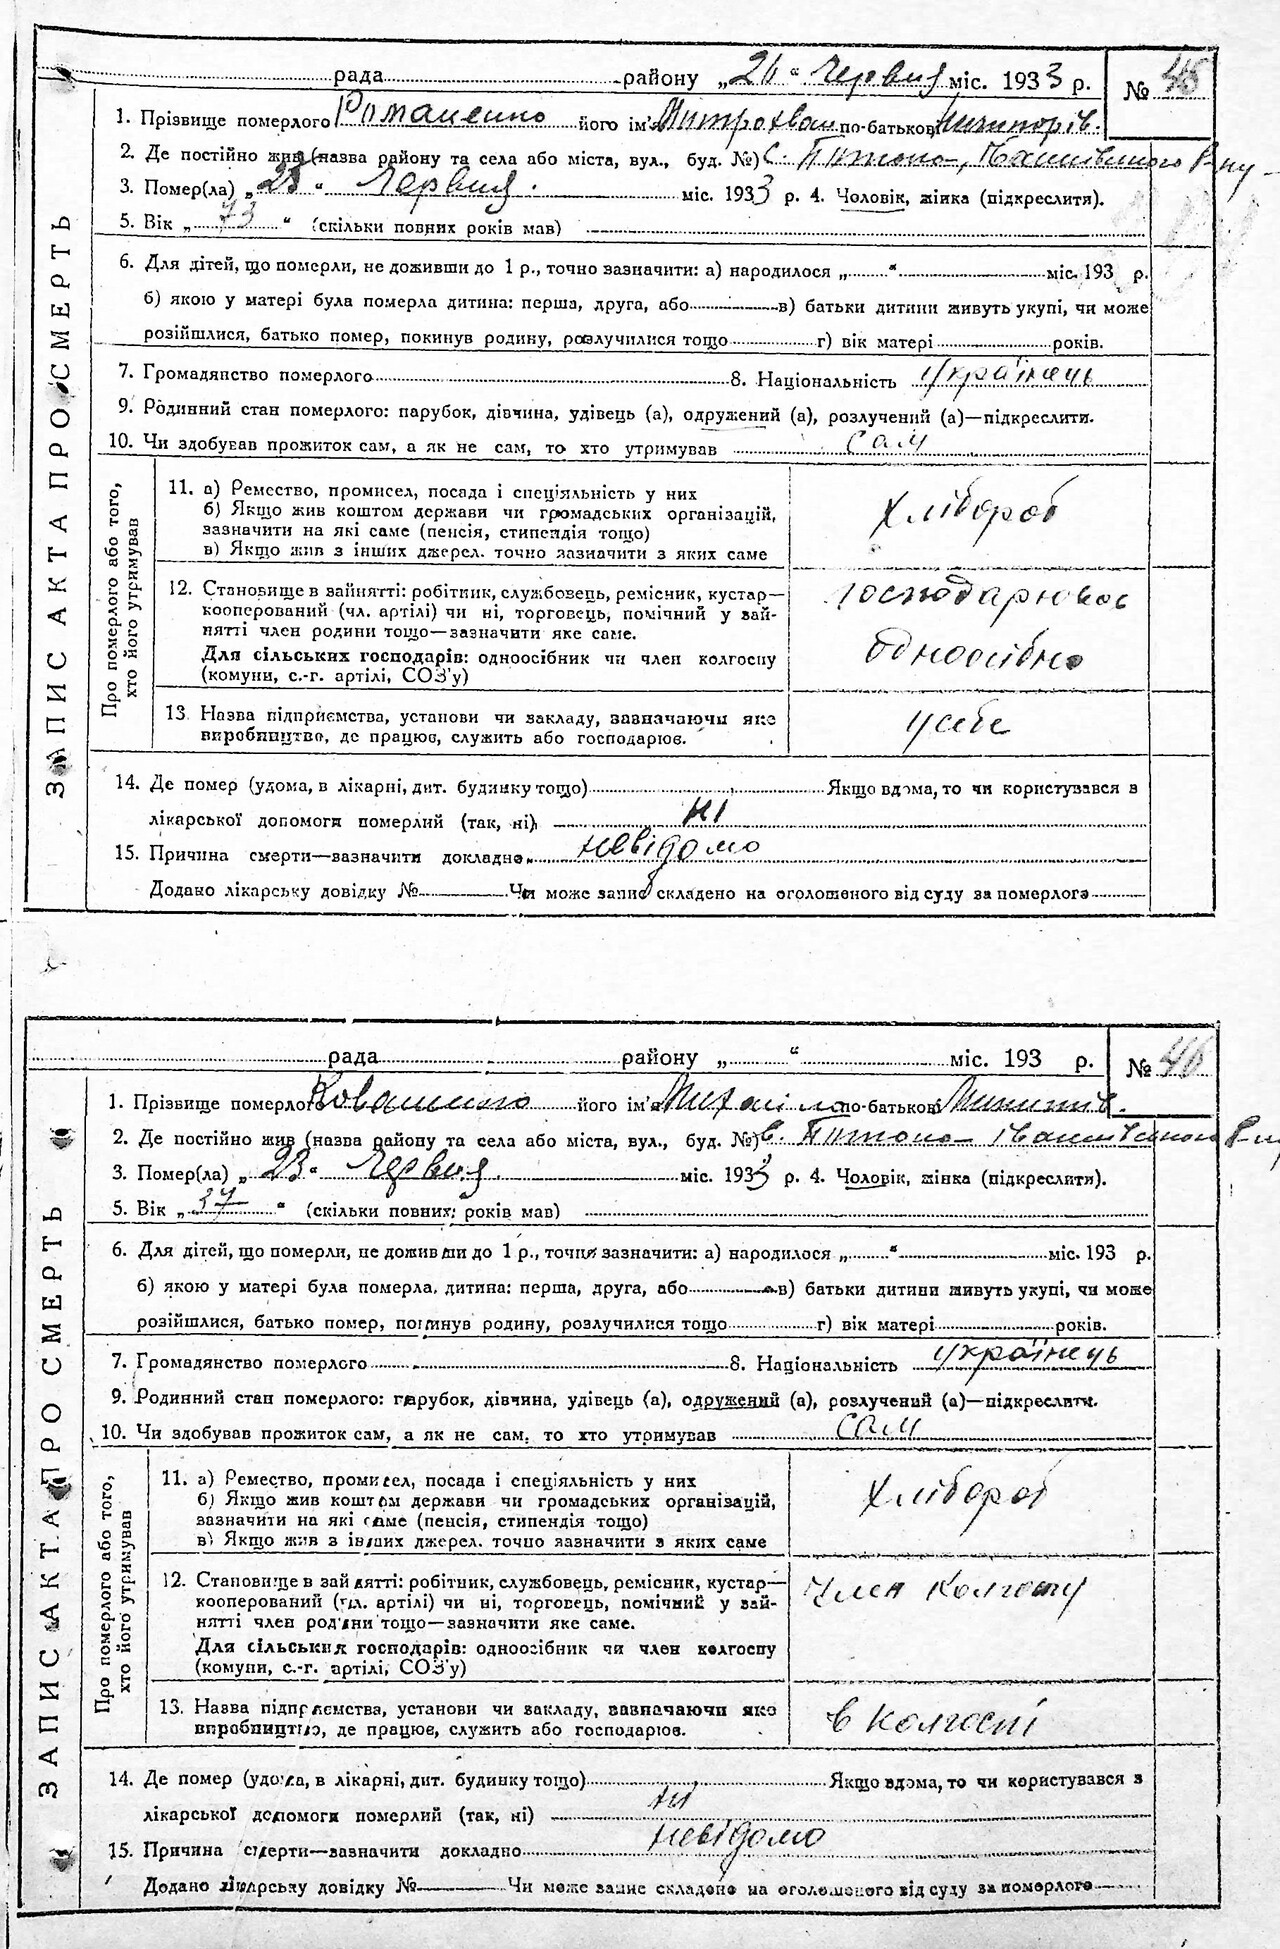 рада району „26“ Червня міс. 1933 р. № 45
1. Прізвище померлого Романенко його ім'я Митрохван по-батькові
2. Де постійно жив (назва району та села або міста, вул., буд. №) с.
3. Помер(ла) „23“ Червня. міс. 1933 р. 4. Чоловік, жінка (підкреслити).
5. Вік „73“ (скільки повних років мав)
6. Для дітей, що померли, не доживши до 1 р., точно зазначити: а) народилося „ “ міс. 193 р.
б) якою у матері була померла дитина: перша, друга, або в) батьки дитини живуть укупі, чи може
розійшлися, батько помер, покинув родину, розлучилися тощо г) вік матері років.
7. Громадянство померлого 8. Національність українець
9. Родинний стан померлого: парубок, дівчина, удівець (а), одружений (а), розлучений (а)—підкреслити.
10. Чи здобував прожиток сам, а як не сам, то хто утримував сам
ЗАПИС АКТА ПРО СМЕРТЬ
Про померлого або того,
хто його утримував
11. а) Ремество, промисел, посада і спеціяльність у них
б) Якщо жив коштом держави чи громадських організацій,
зазначити на які саме (пенсія, стипендія тощо)
в) Якщо жив з інших джерел. точно зазначити з яких саме
Хлібороб
12. Становище в зайнятті: робітник, службовець, ремісник, кустар—
кооперований (чл. артілі) чи ні, торговець, помічний у зай-
нятті член родини тощо—зазначити яке саме.
Для сільських господарів: одноосібник чи член колгоспу
(комуни, с.-г. артілі, СОЗ'у)
одноосібно
13. Назва підприємства, установи чи закладу, зазначаючи яке
виробництво, де працює, служить або господарює.
у себе
14. Де помер (удома, в лікарні, дит. будинку тощо) Якщо вдома, то чи користувався з
лікарської допомоги померлий (так, ні) ні
15. Причина смерти—зазначити докладно невідомо
Додано лікарську довідку № Чи може запис складено на оголошеного від суду за померлого
рада району „ “ міс. 193 р. № 46
1. Прізвище померлого його ім'я Михайло по-батькові
2. Де постійно жив (назва району та села або міста, вул., буд. №) с.
3. Помер(ла) „23“ Червня. міс. 1933 р. 4. Чоловік, жінка (підкреслити).
5. Вік „37“ (скільки повних років мав)
6. Для дітей, що померли, не доживши до 1 р., точно зазначити: а) народилося „ “ міс. 193 р.
б) якою у матері була померла дитина: перша, друга, або в) батьки дитини живуть укупі, чи може
розійшлися, батько помер, покинув родину, розлучилися тощо г) вік матері років.
7. Громадянство померлого 8. Національність українець
9. Родинний стан померлого: парубок, дівчина, удівець (а), одружений (а), розлучений (а)—підкреслити.
10. Чи здобував прожиток сам, а як не сам, то хто утримував сам
ЗАПИС АКТА ПРО СМЕРТЬ
Про померлого або того,
хто його утримував
11. а) Ремество, промисел, посада і спеціяльність у них
б) Якщо жив коштом держави чи громадських організацій,
зазначити на які саме (пенсія, стипендія тощо)
в) Якщо жив з інших джерел. точно зазначити з яких саме
Хлібороб
12. Становище в зайнятті: робітник, службовець, ремісник, кустар—
кооперований (чл. артілі) чи ні, торговець, помічний у зай-
нятті член родини тощо—зазначити яке саме.
Для сільських господарів: одноосібник чи член колгоспу
(комуни, с.-г. артілі, СОЗ'у)
Член колгоспу
13. Назва підприємства, установи чи закладу, зазначаючи яке
виробництво, де працює, служить або господарює.
в колгоспі
14. Де помер (удома, в лікарні, дит. будинку тощо) Якщо вдома, то чи користувався з
лікарської допомоги померлий (так, ні) ні
15. Причина смерти—зазначити докладно невідомо
Додано лікарську довідку № Чи може запис складено на оголошеного від суду за померлого